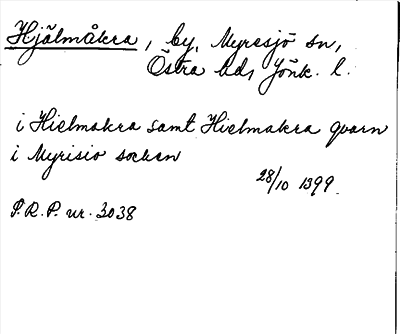 Hjälmåkra, by, Myresjö sn,
Östra hd, Jönk. l.
i Hielmakra samt Hielmakra qvarn
i Myrisio sockan
28/10 1399.
P.R.P. nr. 3038